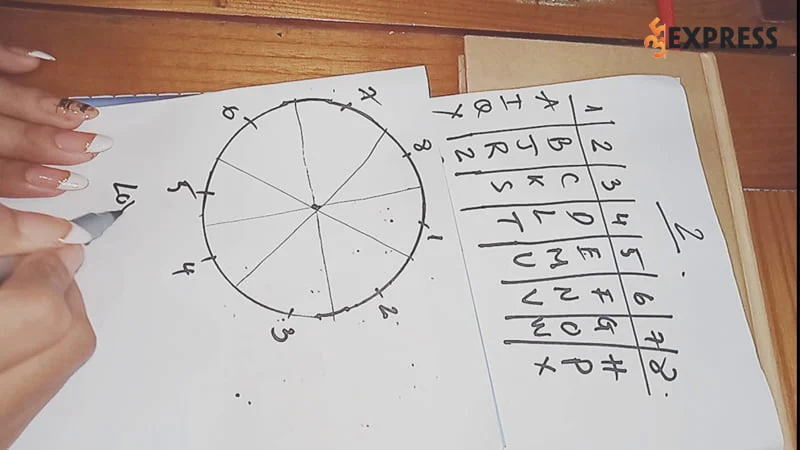 EXPRESS
2.
1 2 3 4 5 6 7 8.
A B C D E F G H
I J K L M N O P
Q R S T U V W X
Y Z
1
2
3
4
5
6
7
8